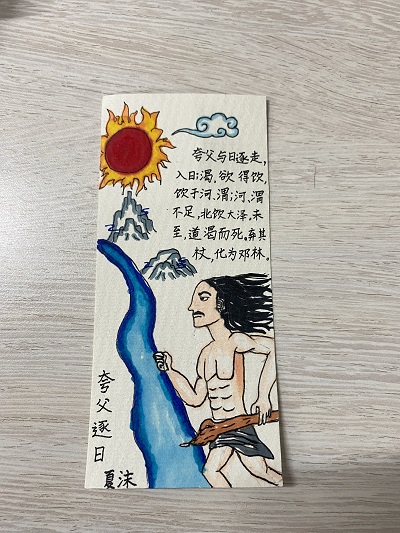 夸父与日逐走,
入日;渴,欲得饮,
饮于河、渭;河、渭
不足,北饮大泽。未
至,道渴而死。弃其
杖,化为邓林。
夸父逐日
夏沫